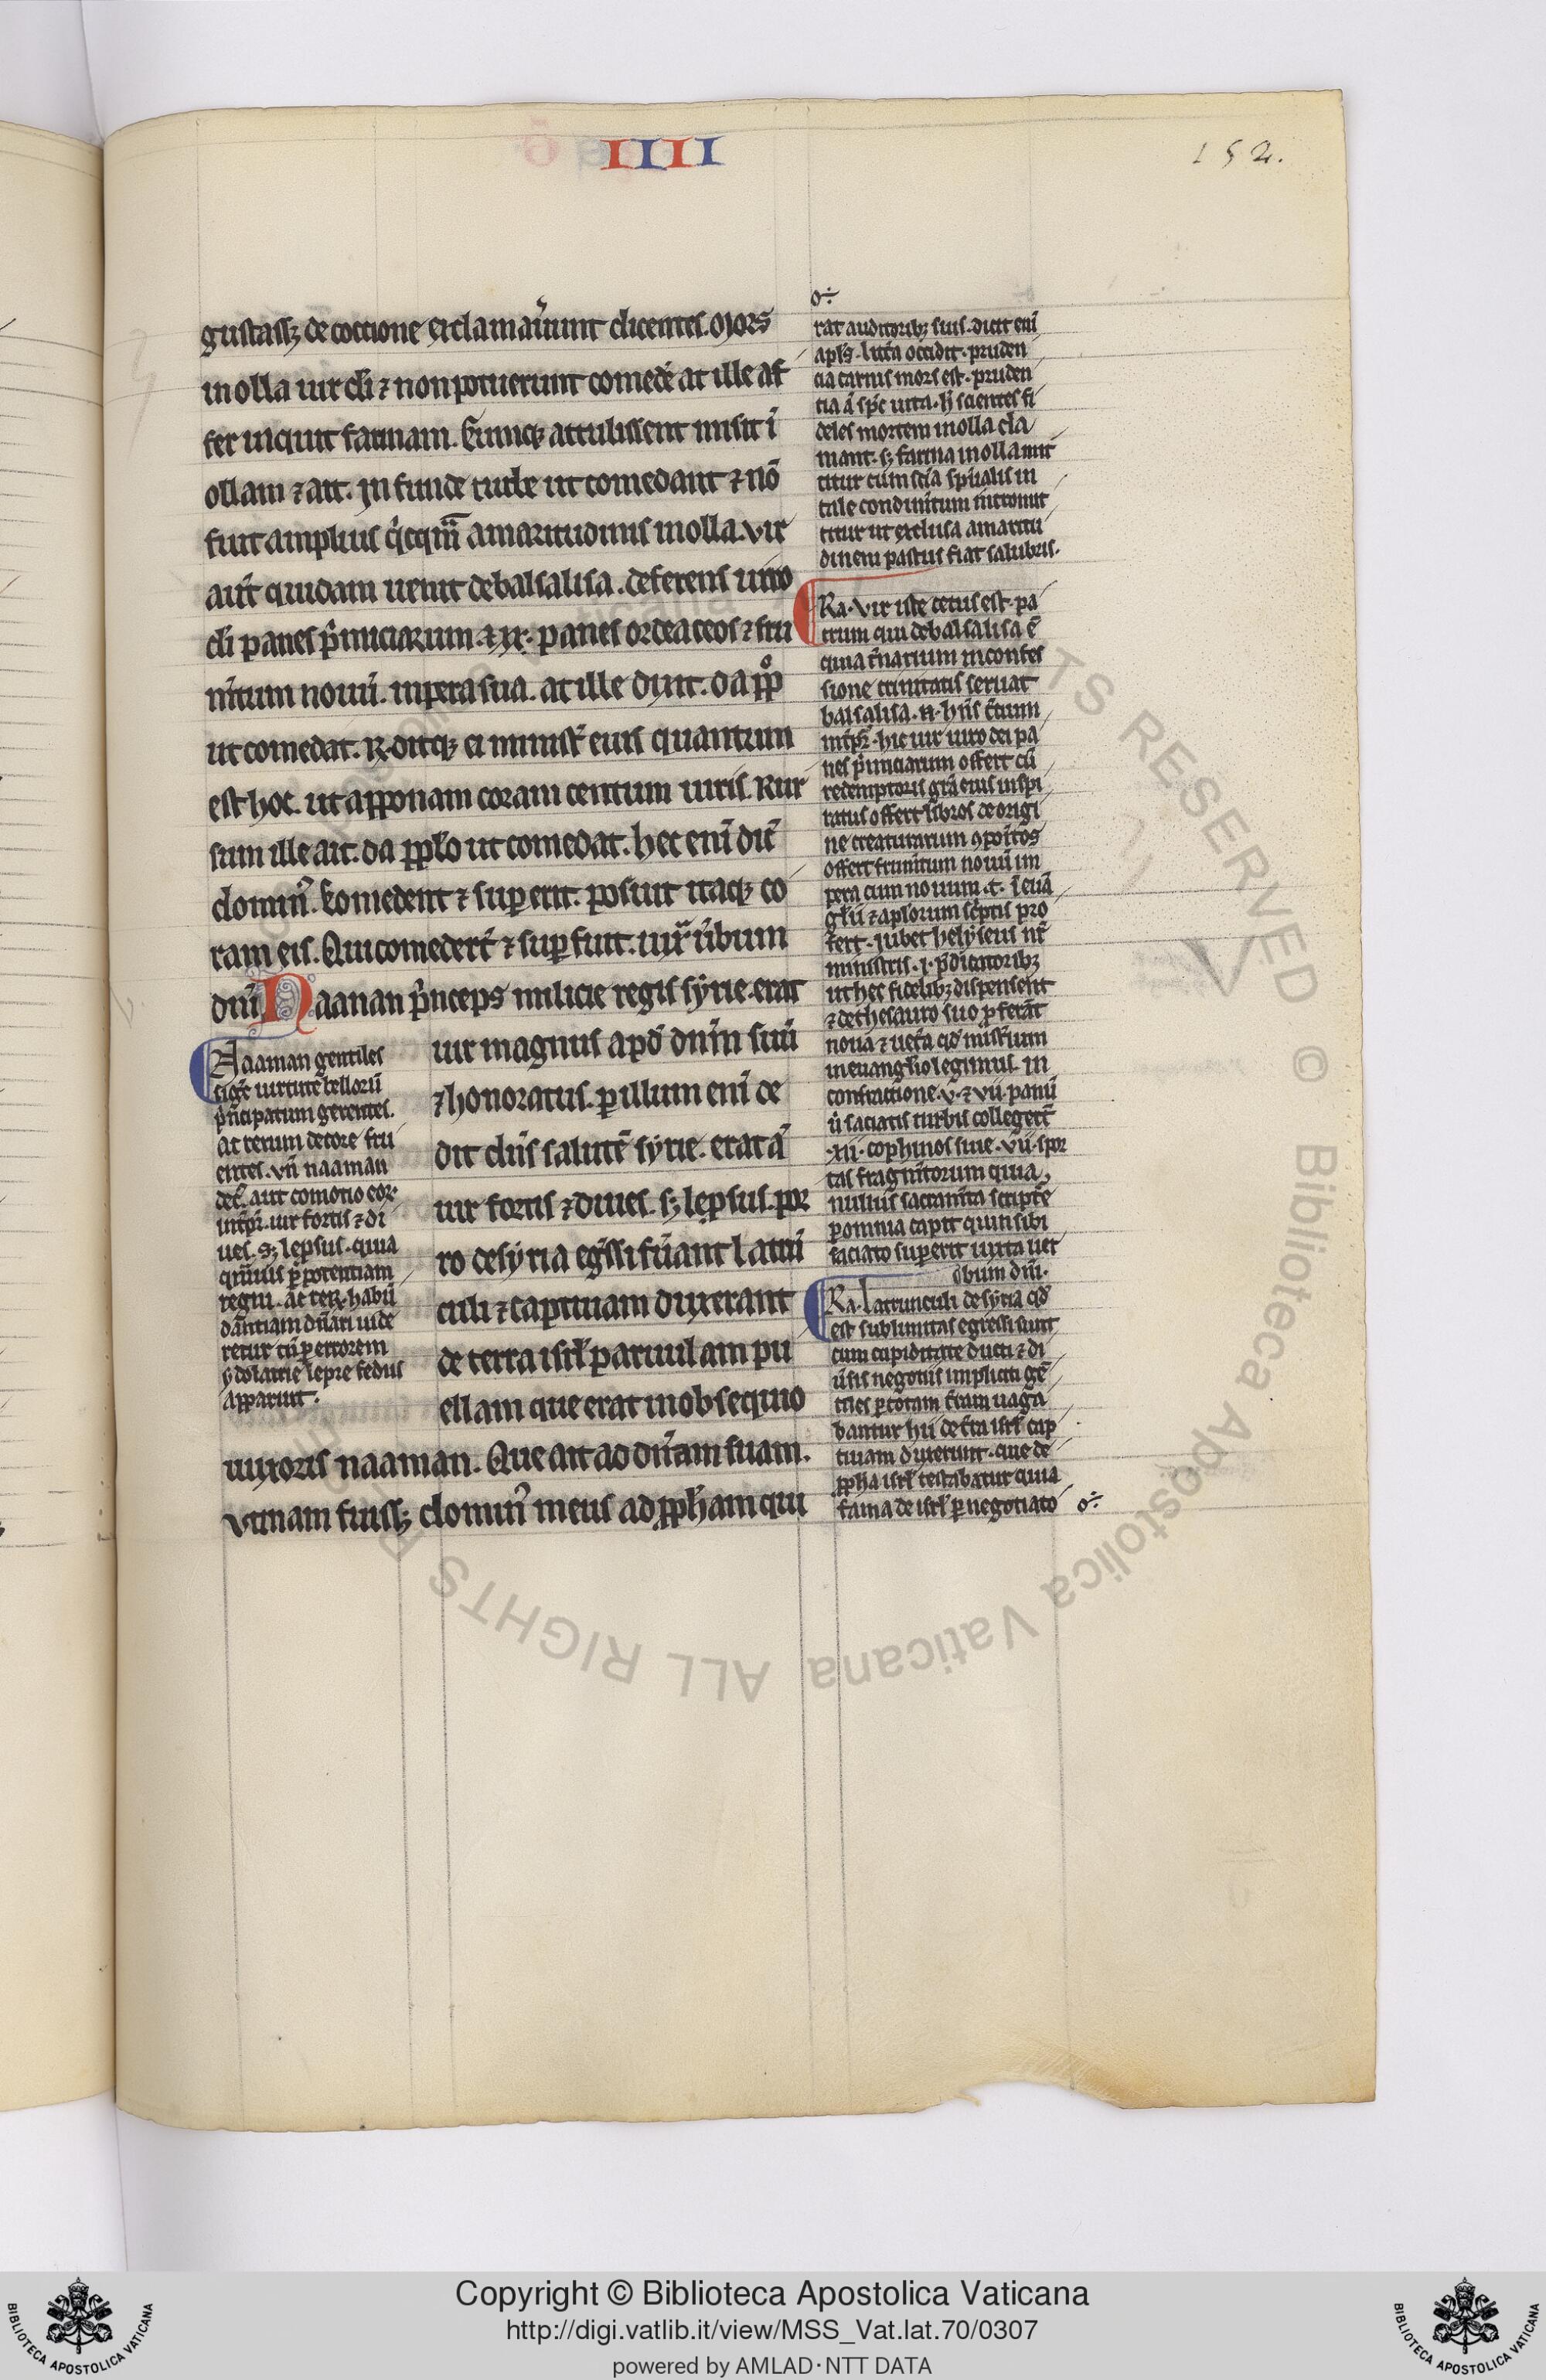 IIII
152.
gustass; de coctione exclamau̾unt dicentes. Mors
in olla uir d̅i ⁊ non potuerunt comed̾e at ille af
fer inquit farinam. Cumq; attulissent misit ī
ollam ⁊ ait. In funde turbe ut comedant ⁊ nō
fuit amplius q̇cq̄m amaritudinis in olla. Vir
aut̄ quidam uenit debalsalisa. deferens uiro
d̅i panes p̍miciarum. ⁊ xx. panes ordeaceos ⁊ fru
m̅tum nouū. in pera sua. at ille dixit. da ppo
ut comedat. R. ditq; ei minist̾ eius quantum
est hoc. ut apponam coram centum uiris. Rur
sum ille ait. da pplo ut comedat. hec eni̅ dic̄
domin̾. Comedent ⁊ sup erit. posuit itaq; co
ram eis. Qui comeder̄t ⁊ sup fuit. iux̄ u̾bum
dni̅ Naanan p̍nceps milicie regis syrie. erat
uir magnus apd̾ dnm̅ suū
⁊ honoratus. p illum eni̅ de
dit dn̅s salutē syrie. erat aū
uir fortis ⁊ diues. s; lepsus. por
ro desyria eg̾ssi fu̾ant latrū
culi ⁊ captiuam duxerant
de terra isrl̅ paruulam pu
ellam que erat in obsequio
uxoris naaman. Que ait ad dn̅am suam.
Vtinam fuiss; domin̾ meus ad ppham qui
Naaman gentiles
fig̾t uirtute belloru̅
p̍ncipatum gerentes.
ac rerum decore fru
entes. vn̄ naaman
dec̾. aut comotio eor̾
int̾p̾. uir fortis ⁊ di
ues. S; lepsus. quia
q̄muis p̄ potentiam
regni. ac ter̾. habū
dantiam dn̅ari uide
retur tn̅ p errorem
ydolatrie lepre fedus
apparuit.
o÷
rat auditorib; suis. dicit eni̅
apl̅s. litt̾a occidit. pruden
cia carnis mors est. pruden
tia a̅ sp̅c uita. h̾ scientes fi
deles mortem in olla cla
mant. s; farina in olla mit
titur cum scīa sp̅ualis in
tale condim̅tum intromit
titur ut exclusa amaritu
dinem pastus fiat salubris.
Ra. Vir iste cetus est. pa
trum qui debalsalisa ē
quia t̾narium in confes
sione trinitatis seruat
balsalisa. n. hn̅s t̾tium
int̾p̾. hic uir uiro dei pa
nes p̍miciarum offert cū
redemptoris gr̄a eius inspi
ratus offert libros de origi
ne creaturarum ꝯpoītos
offert frum̅tum nouū im
pera cum nouum. t. ī euā
gl̅ii ⁊ apl̅orum sc̾ptis pro
fert. iubet helyseus nr̅
ministris. i. p̄dicatorib;
ut hec fidelib; dispensent
⁊ de thesauro suo p ferāt
noua ⁊ uet̾a qd̾ mist̾ium
in euangl̅io legimus. In
confractione. v. ⁊ vii. panū
u̾ saciatis turbis collegerūt
xii. cophinos siue. vii. spor
tas fragm̅torum quia
nullius sacram̅ta scripte̅
p omnia capit quin sibi
faciato superit iuxta uer
bum dni̅.
Ra. Latrunculi de syria qd̾
est sublimitas egressi sunt
cum cupiditate ducti ⁊ di
u̾sis negotiis impliciti gē
tiles p totam t̾ram uaga
bantur hii de t̾ra isrl̅ cap
tiuam duxerunt. que de
ppha isrl̅ testabatur quia
fama de isrl̅ p negotiato o÷
Copyright © Biblioteca Apostolica Vaticana
http://digi.vatlib.it/view/MSS_Vat.lat.70/0307
powered by AMLAD·NTT DATA
BIBLIOTECA APOSTOLICA VATICANA
BIBLIOTECA APOSTOLICA VATICANA